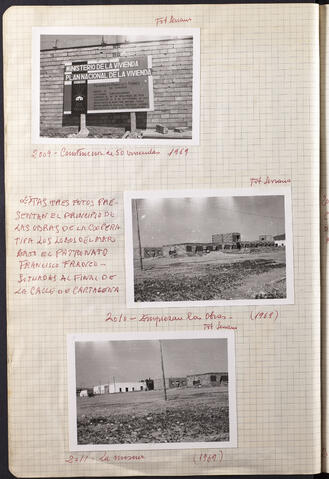 Fot Serrano
MINISTERIO DE LA VIVIENDA
PLAN NACIONAL DE LA VIVIENDA
2009 - Construccion de 50 viviendas 1969
Fot Serrano
ESTAS TRES FOTOS PRE-
SENTAN EL PRINCIPIO DE
LAS OBRAS DE LA COOPERA-
TIVA LOS LOBOS DEL MAR
BAJO EL PATRONATO
FRANCISCO FRANCO -
SITUADAS AL FINAL DE
LA CALLE DE CARTAGENA
2010 - Empiezan las Obras - (1969)
Fot Serrano
2011 - La misma (1969)